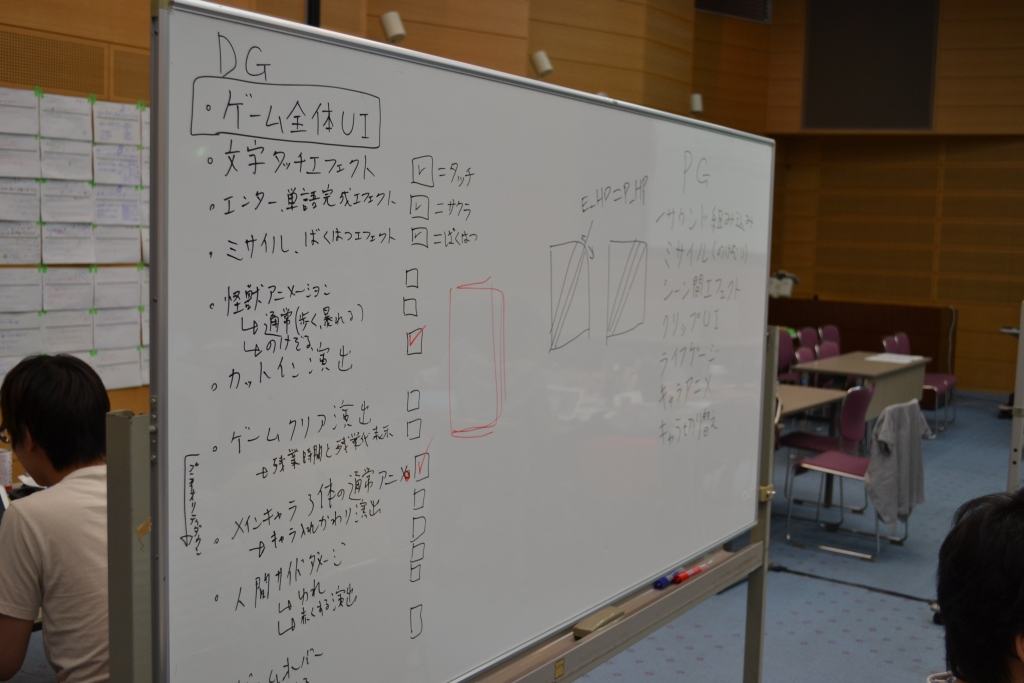 DG
・ゲーム全体UI
・文字タッチエフェクト
=タッチ
・エンター、単語完成エフェクト
=サクラ
・ミサイル、ばくはつエフェクト
=ばくはつ
・怪獣アニメーション
↳通常(歩く、暴れる)
↳のけぞる
・カットイン演出
・ゲームクリア演出
→残業時間と残業代表示
・メインキャラ3体の通常アニメ
→キャラ入れかわり演出
・人間サイドダメージ
↳われ
↳赤くする演出
ゲームオーバー
E_HP=P_HP
PG
サウンド組み込み
ミサイル
シーン間エフェクト
クリップUI
ライフゲージ
キャラアニメ
キャラ切り替え